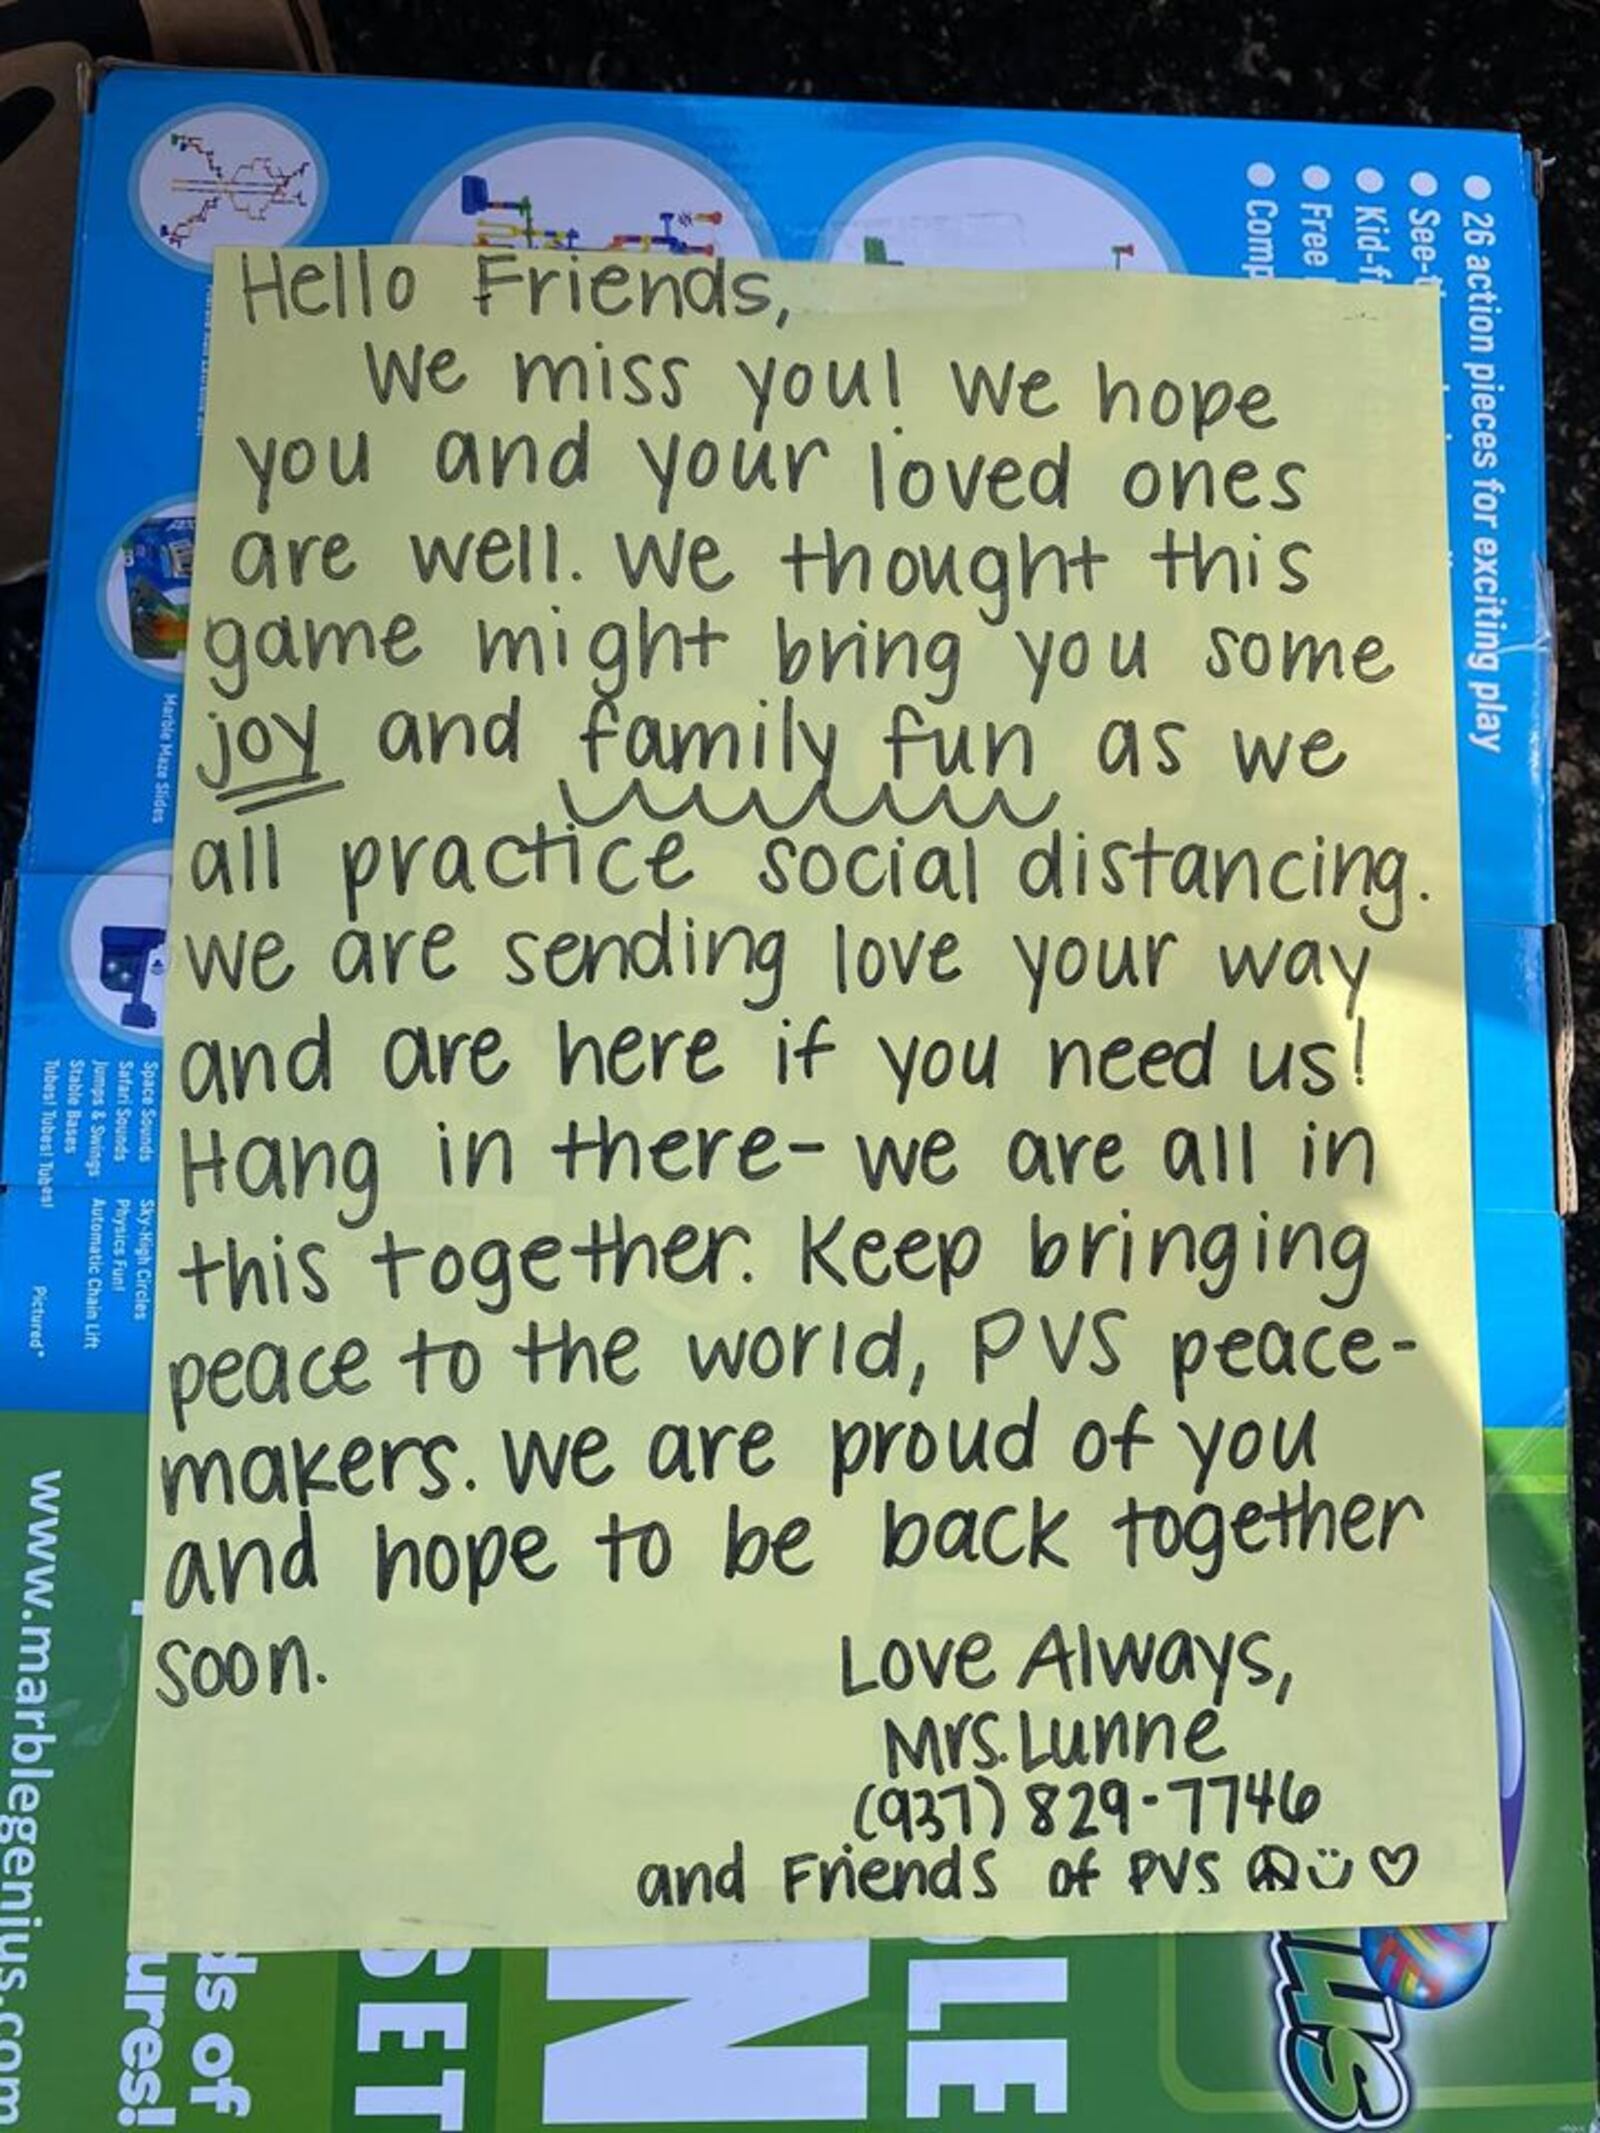 Hello Friends,
We miss you! We hope
you and your loved ones
are well. We thought this
game might bring you some
joy and family fun as we
all practice social distancing.
We are sending love your way
and are here if you need us!
Hang in there- we are all in
this together. Keep bringing
peace to the world, PVS peace-
makers. We are proud of you
and hope to be back together
soon.
Love Always,
Mrs. Lunne
(937) 829-7746
and Friends of PVS
26 action pieces for exciting play
See-t
Kid-f
Free
Comp
Marble Maze Slides
Space Sounds
Safari Sounds
Jumps & Swings
Stable Bases
Tubes! Tubes! Tubes!
Sky-High Circles
Physics Fun!
Automatic Chain Lift
Pictured*
www.marblegenius.com
ds of
ures!
SET
N
LE
us